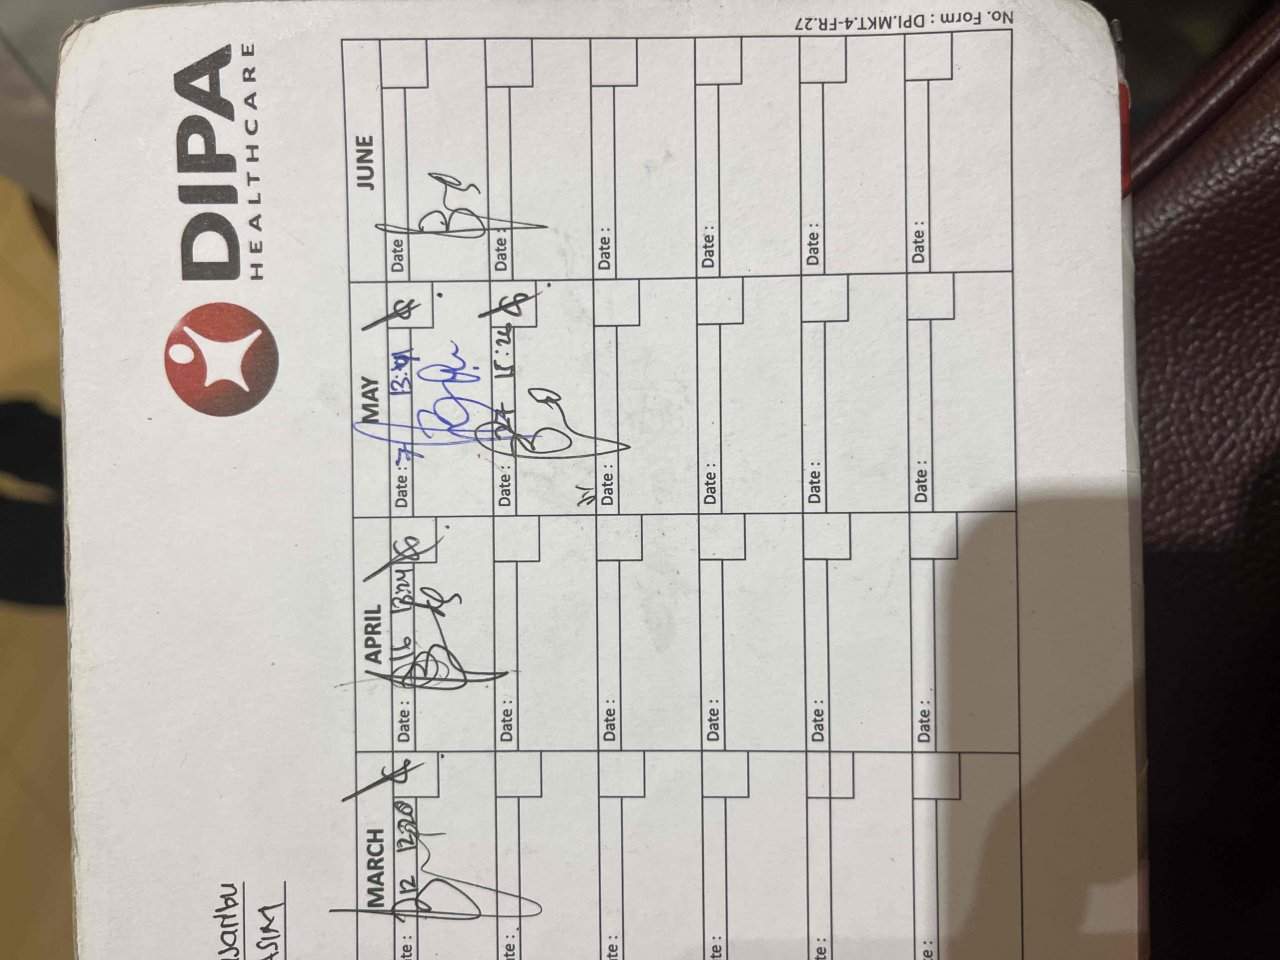 DIPA
HEALTHCARE
MARCH APRIL MAY JUNE
te : 12 12:20 Date : 16 13:24 Date : 7 13: Date
te : Date : Date : 27 15:26 Date :
te : Date : Date : Date :
te : Date : Date : Date :
te : Date : Date : Date :
e : Date : Date : Date :
No. Form : DPI.MKT.4-FR.27